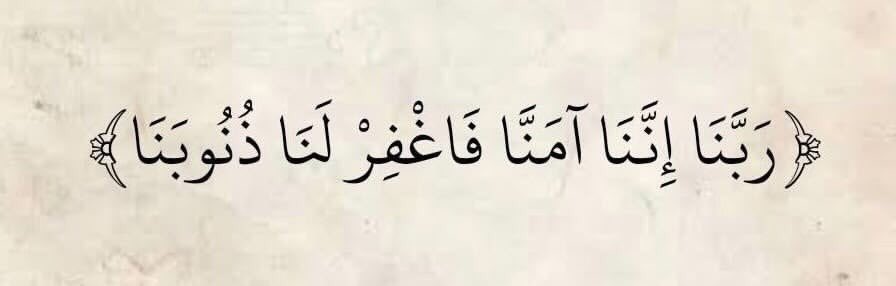 ﴿رَبَّنَا إِنَّنَا آمَنَّا فَاغْفِرْ لَنَا ذُنُوبَنَا﴾